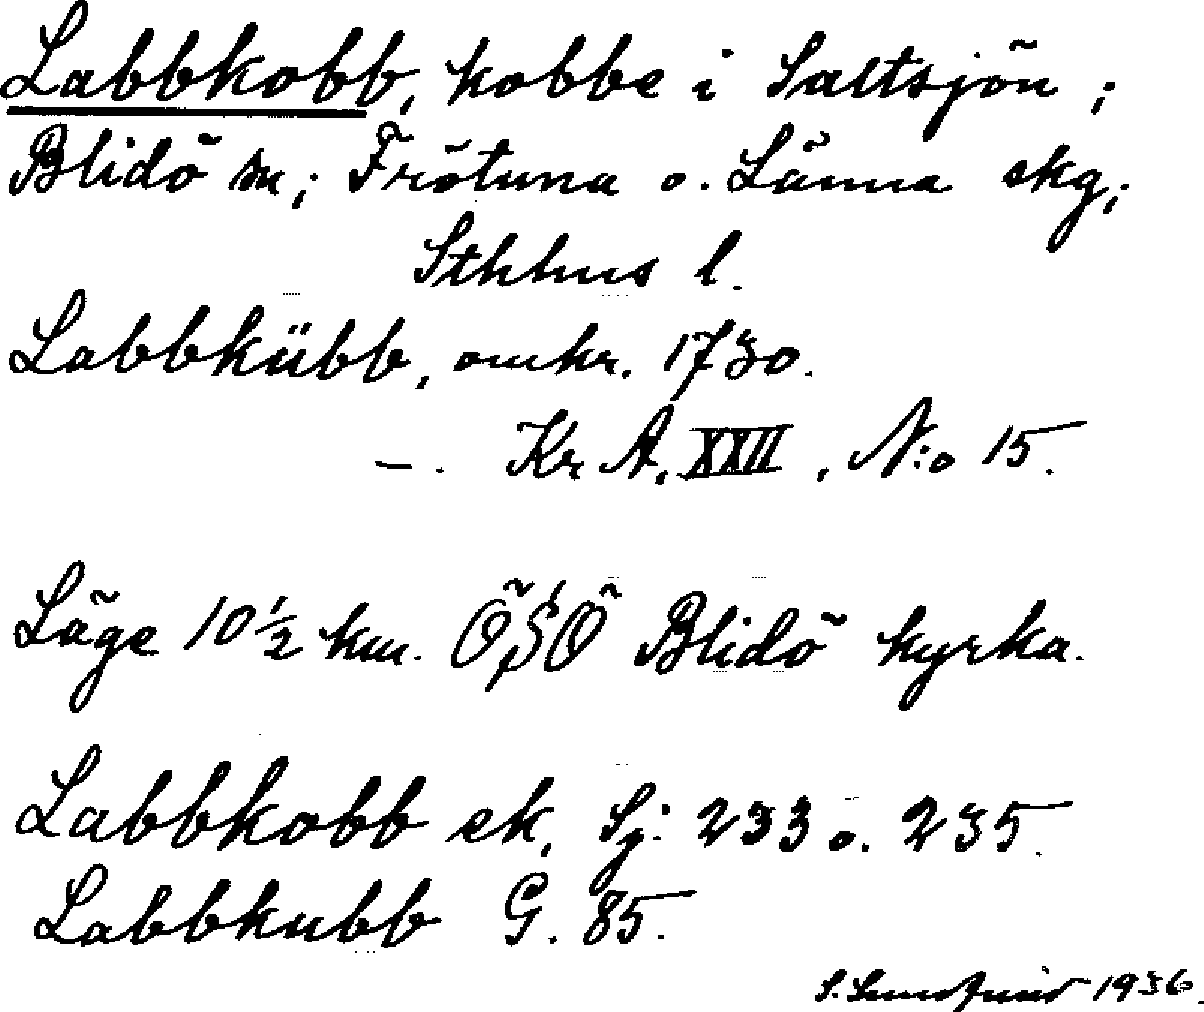 Labbkobb, kobbe i Saltsjön;
Blidö sn; Frötuna o. Länna skg;
Sthlms l.
Labbkübb, omkr. 1730.
—. Kr A, XXII, N:o 15.
Läge 10 1/2 km. ÖSÖ Blidö kyrka.
Labbkobb ek, Sj: 233 o. 235.
Labbkubb G. 85.
S. 1936.